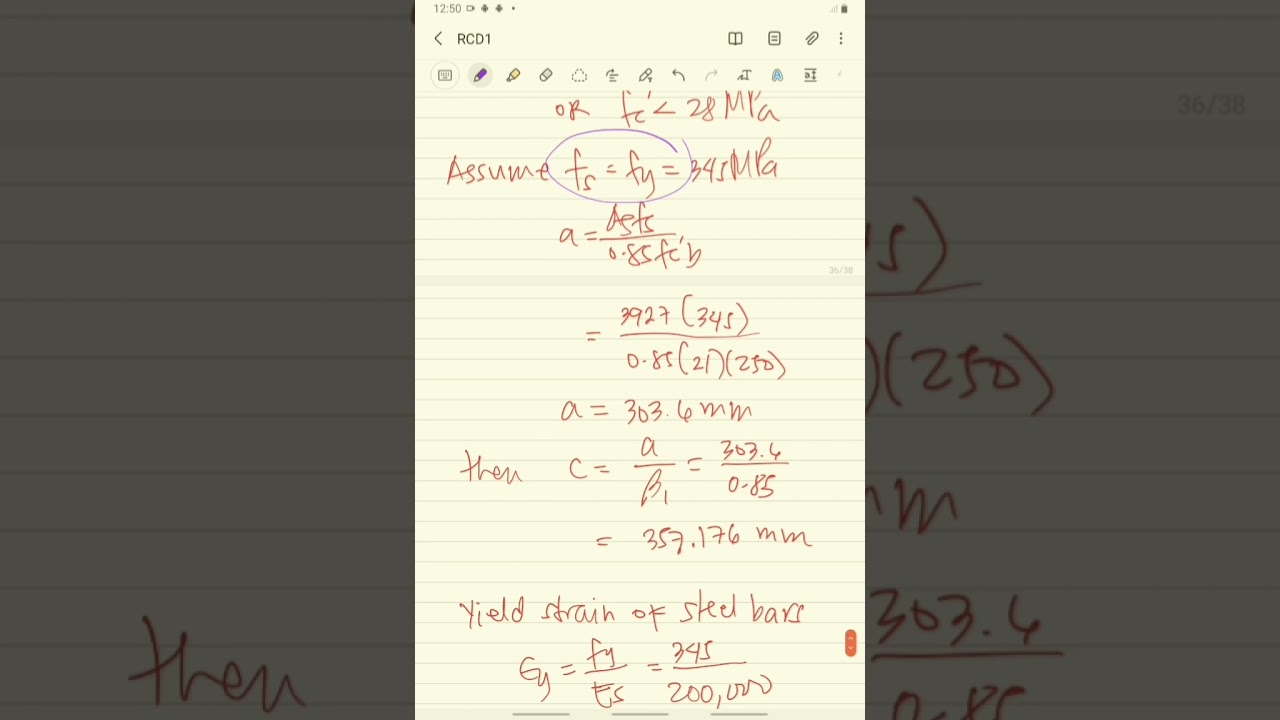 12:50
RCD1
or fc' < 28 MPa
Assume fs = fy = 345 MPa
a = Asfs / 0.85fc'b
36/38
= 3927 (345) / 0.85(21)(250)
a = 303.6 mm
then c = a / β1 = 303.6 / 0.85
= 357.176 mm
Yield strain of steel bars
Єy = fy / Es = 345 / 200,000